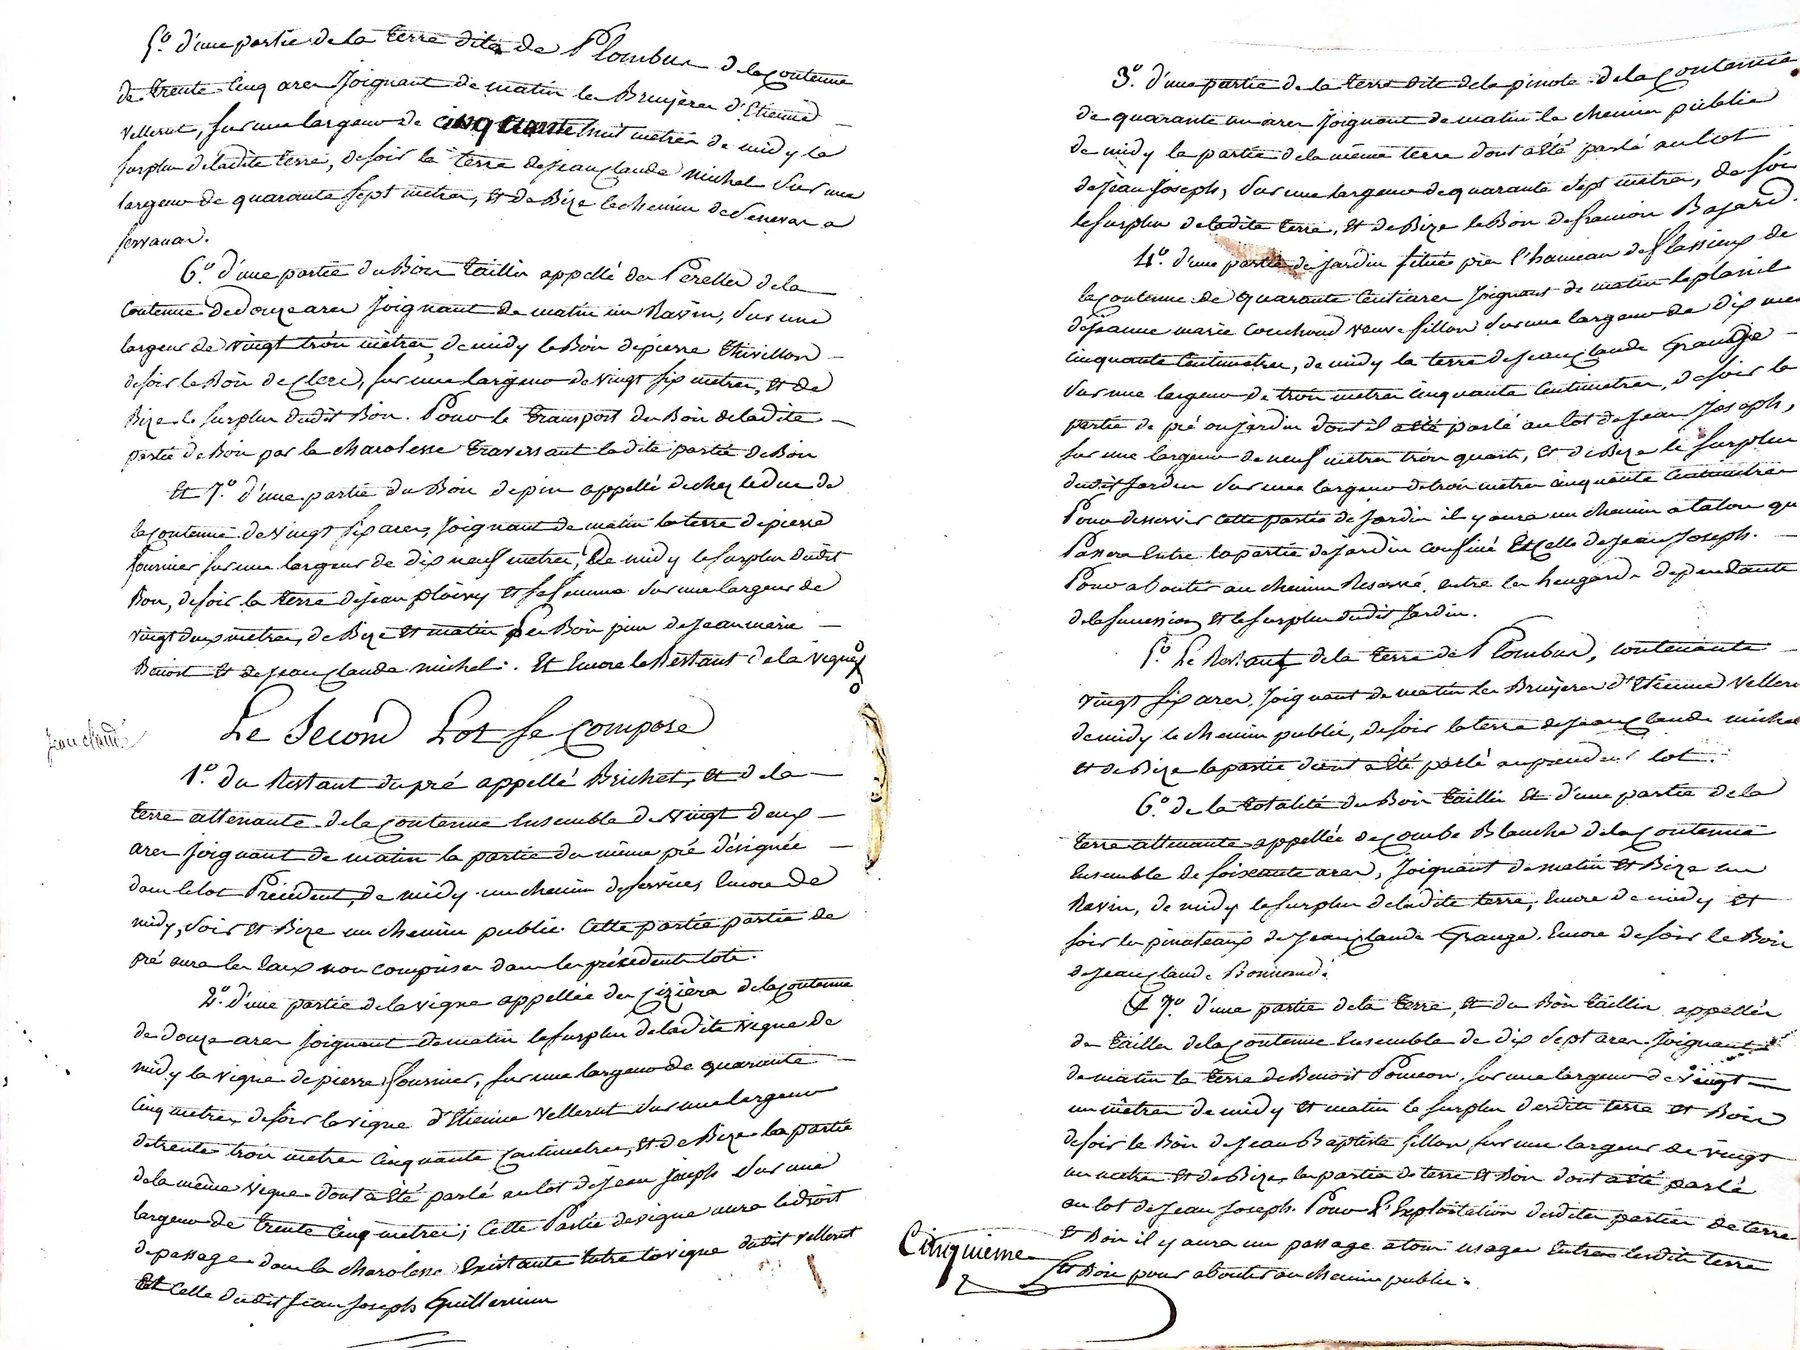 5.° d'une partie de la terre dite de Plombus de la Contenue
de trente cinq ares Joignant de matin les Bruyères d'Etienne
Vellerut, sur une largeur de cinquante huit mètres de midy le
surplus de ladite terre, de soir la terre de Jean Claude michel sur une
largeur de quarante sept metres, et de Bize le chemin de Senevas a
servanas.
6.° d'une partie du Bois taillis appellé des Perelles de la
Contenue de Douze ares Joignant de matin un Ravin, sur une
largeur de vingt trois mètres, de midy le Bois de pierre Thivillon
de soir le Bois de Clere, sur une largeur de vingt six metres, et de
Bize le surplus dudit Bois. Pour le transport du Bois de ladite
partie de Bois par la charolesse traversant ladite partie de Bois
Et 7.° d'une partie du Bois de pin appellé de chez le duc de
la contenue de vingt six ares, Joignant de matin la terre de pierre
Fournier sur une largeur de dix neuf metres, De midy le surplus dudit
Bois, de soir la terre de Jean ploivy et sa femme sur une largeur de
vingt deux metres, de Bize et matin les Bois pins de Jean marie
Benoit et de Jean Claude michel. Et Encore le Restant de la vigne
Jean claude
Le Second Lot se compose
1.° du Restant du pré appellé Brichet, et de la
terre attenante de la Contenue Ensemble de vingt deux
ares Joignant de matin la partie du même pré désignée
dans le lot Précédent, de midy un chemin de services Encore de
midy, soir et Bize un chemin public. Cette partie partie de
pré aura les Eaux non comprises dans les précédents lots.
2.° d'une partie de la vigne appellée des Cizièra de la Contenue
de douze ares Joignant de matin le surplus de ladite vigne de
midy la vigne de pierre Fournier, sur une largeur de quarante
Cinq metres, de soir la vigne d'Etienne Vellerut sur une largeur
de trente trois metres Cinquante Centimetres, et de Bize la partie
de la même vigne dont a été parlé au lot de Jean Joseph sur une
largeur de trente Cinq metres; Cette Partie de vigne aura le droit
de passage dans la charolesse Existante Entre la vigne dudit Vellerut
Et Celle dudit Jean Joseph Guillermin
3.° d'une partie de la terre dite de la pinote de la Contenue
de quarante un ares Joignant de matin le chemin public
de midy la partie de la même terre dont a été parlé au lot
de Jean Joseph, sur une largeur de quarante sept metres, de soir
le surplus de ladite terre, et de Bize le Bois de francois Bajard.
4.° d'une partie de Jardin située près l'hameau de Flassieux de
la contenue de quarante Centiares Joignant de matin le plasil
de Jeanne marie Couchoud veuve fillon sur une largeur de dix me
cinquante Centimetres, de midy la terre de Jean Claude Grange
sur une largeur de trois metres cinquante Centimetres, de soir la
partie de pré ou jardin dont il a été parlé au lot de Jean Joseph,
sur une largeur de neuf metres trois quarts, Et de Bize le surplus
dudit Jardin sur une largeur de trois metres cinquante Centimetres
Pour desservir cette partie de Jardin il y aura un chemin a talon qu
Passera Entre la partie de jardin confiné Et Celle de Jean Joseph.
Pour aboutir au chemin Reservé entre les hangards dependants
de la succession et le surplus dudit Jardin.
5.° Le Restant de la terre de Plombus, contenante
vingt six ares, Joignant de matin les Bruyères d'Etienne Velleru
de midy le chemin public, de soir la terre de Jean Claude michel
et de Bize la partie dont a été parlé au premier lot.
6.° de la totalité du Bois taillis Et d'une partie de la
terre attenante appellée de Combe Blanche de la Contenue
Ensemble de soixante ares, Joignant de matin et Bize un
Ravin, de midy le surplus de ladite terre, Encore de midy et
soir les pinateaux de Jean Claude Grange. Encore de soir le Bois
de Jean Claude Bonnand.
Et 7.° d'une partie de la terre, et du Bois taillis appellés
du tailler de la Contenue Ensemble de dix sept ares Joignants
de matin la terre de Benoit Poncon, sur une largeur de vingt
un mètres de midy et matin le surplus desdits terre et Bois
de soir le Bois de Jean Baptiste fillon, sur une largeur de vingt
un metres et de Bize, la partie de terre et Bois dont a été parlé
au lot de Jean Joseph. Pour L'Exploitation desdites parties de terre
et Bois il y aura un passage a tous usages Entre lesdits terre
Et Bois pour aboutir au chemin public.
Cinquieme